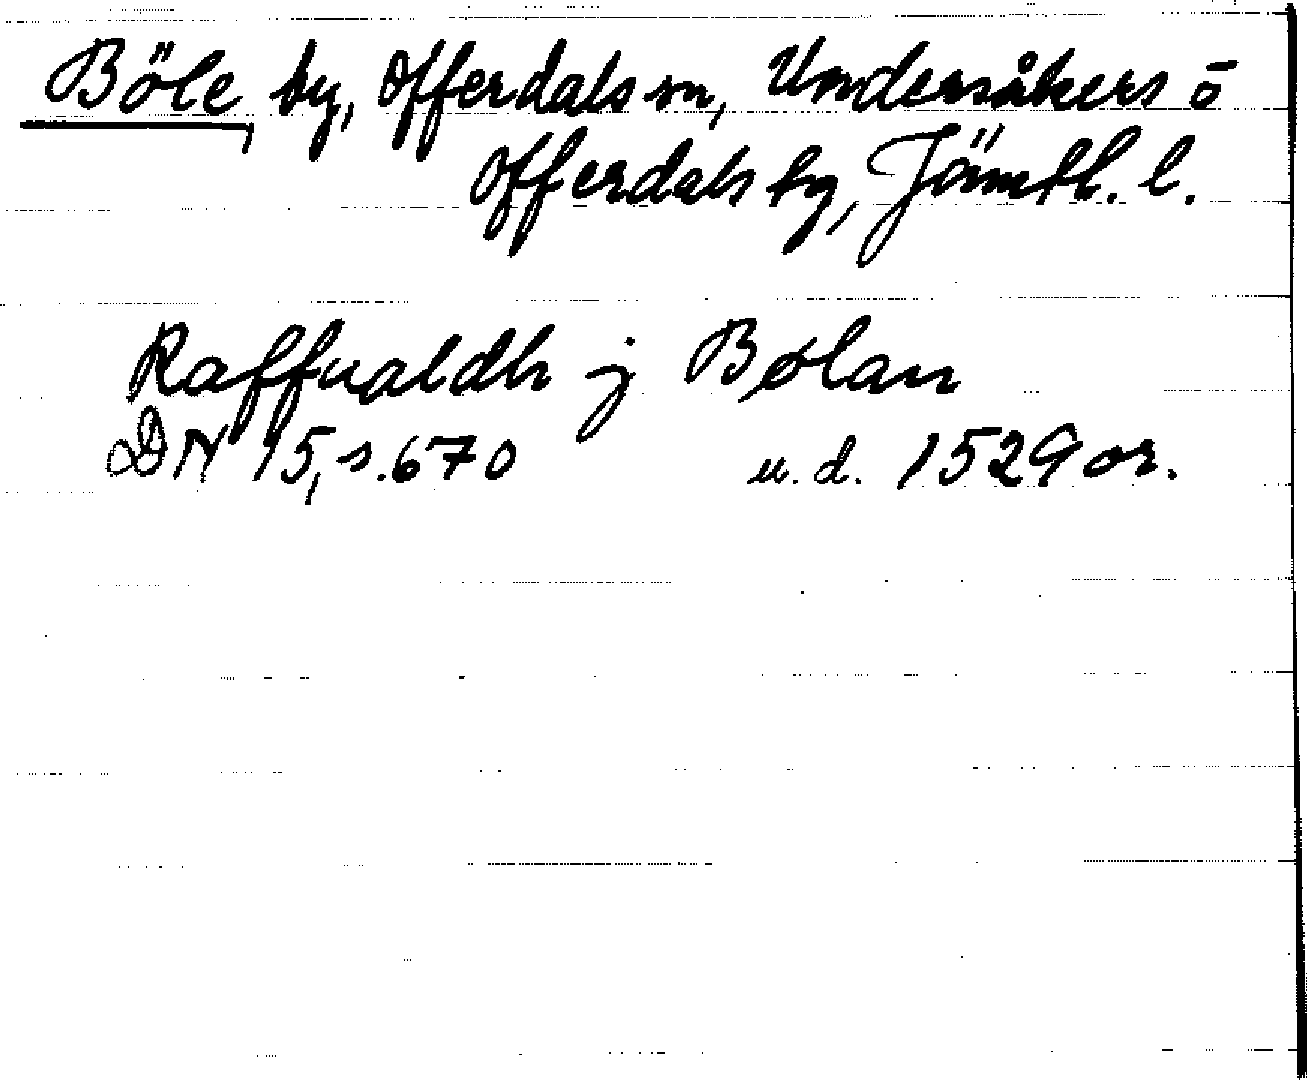 Böle, by, Offerdals sn, Undersåkers o
Offerdals tg, Jämtl. l.
Raffualdh j Bølan
DN 15, s. 670 u. d. 1529 or.